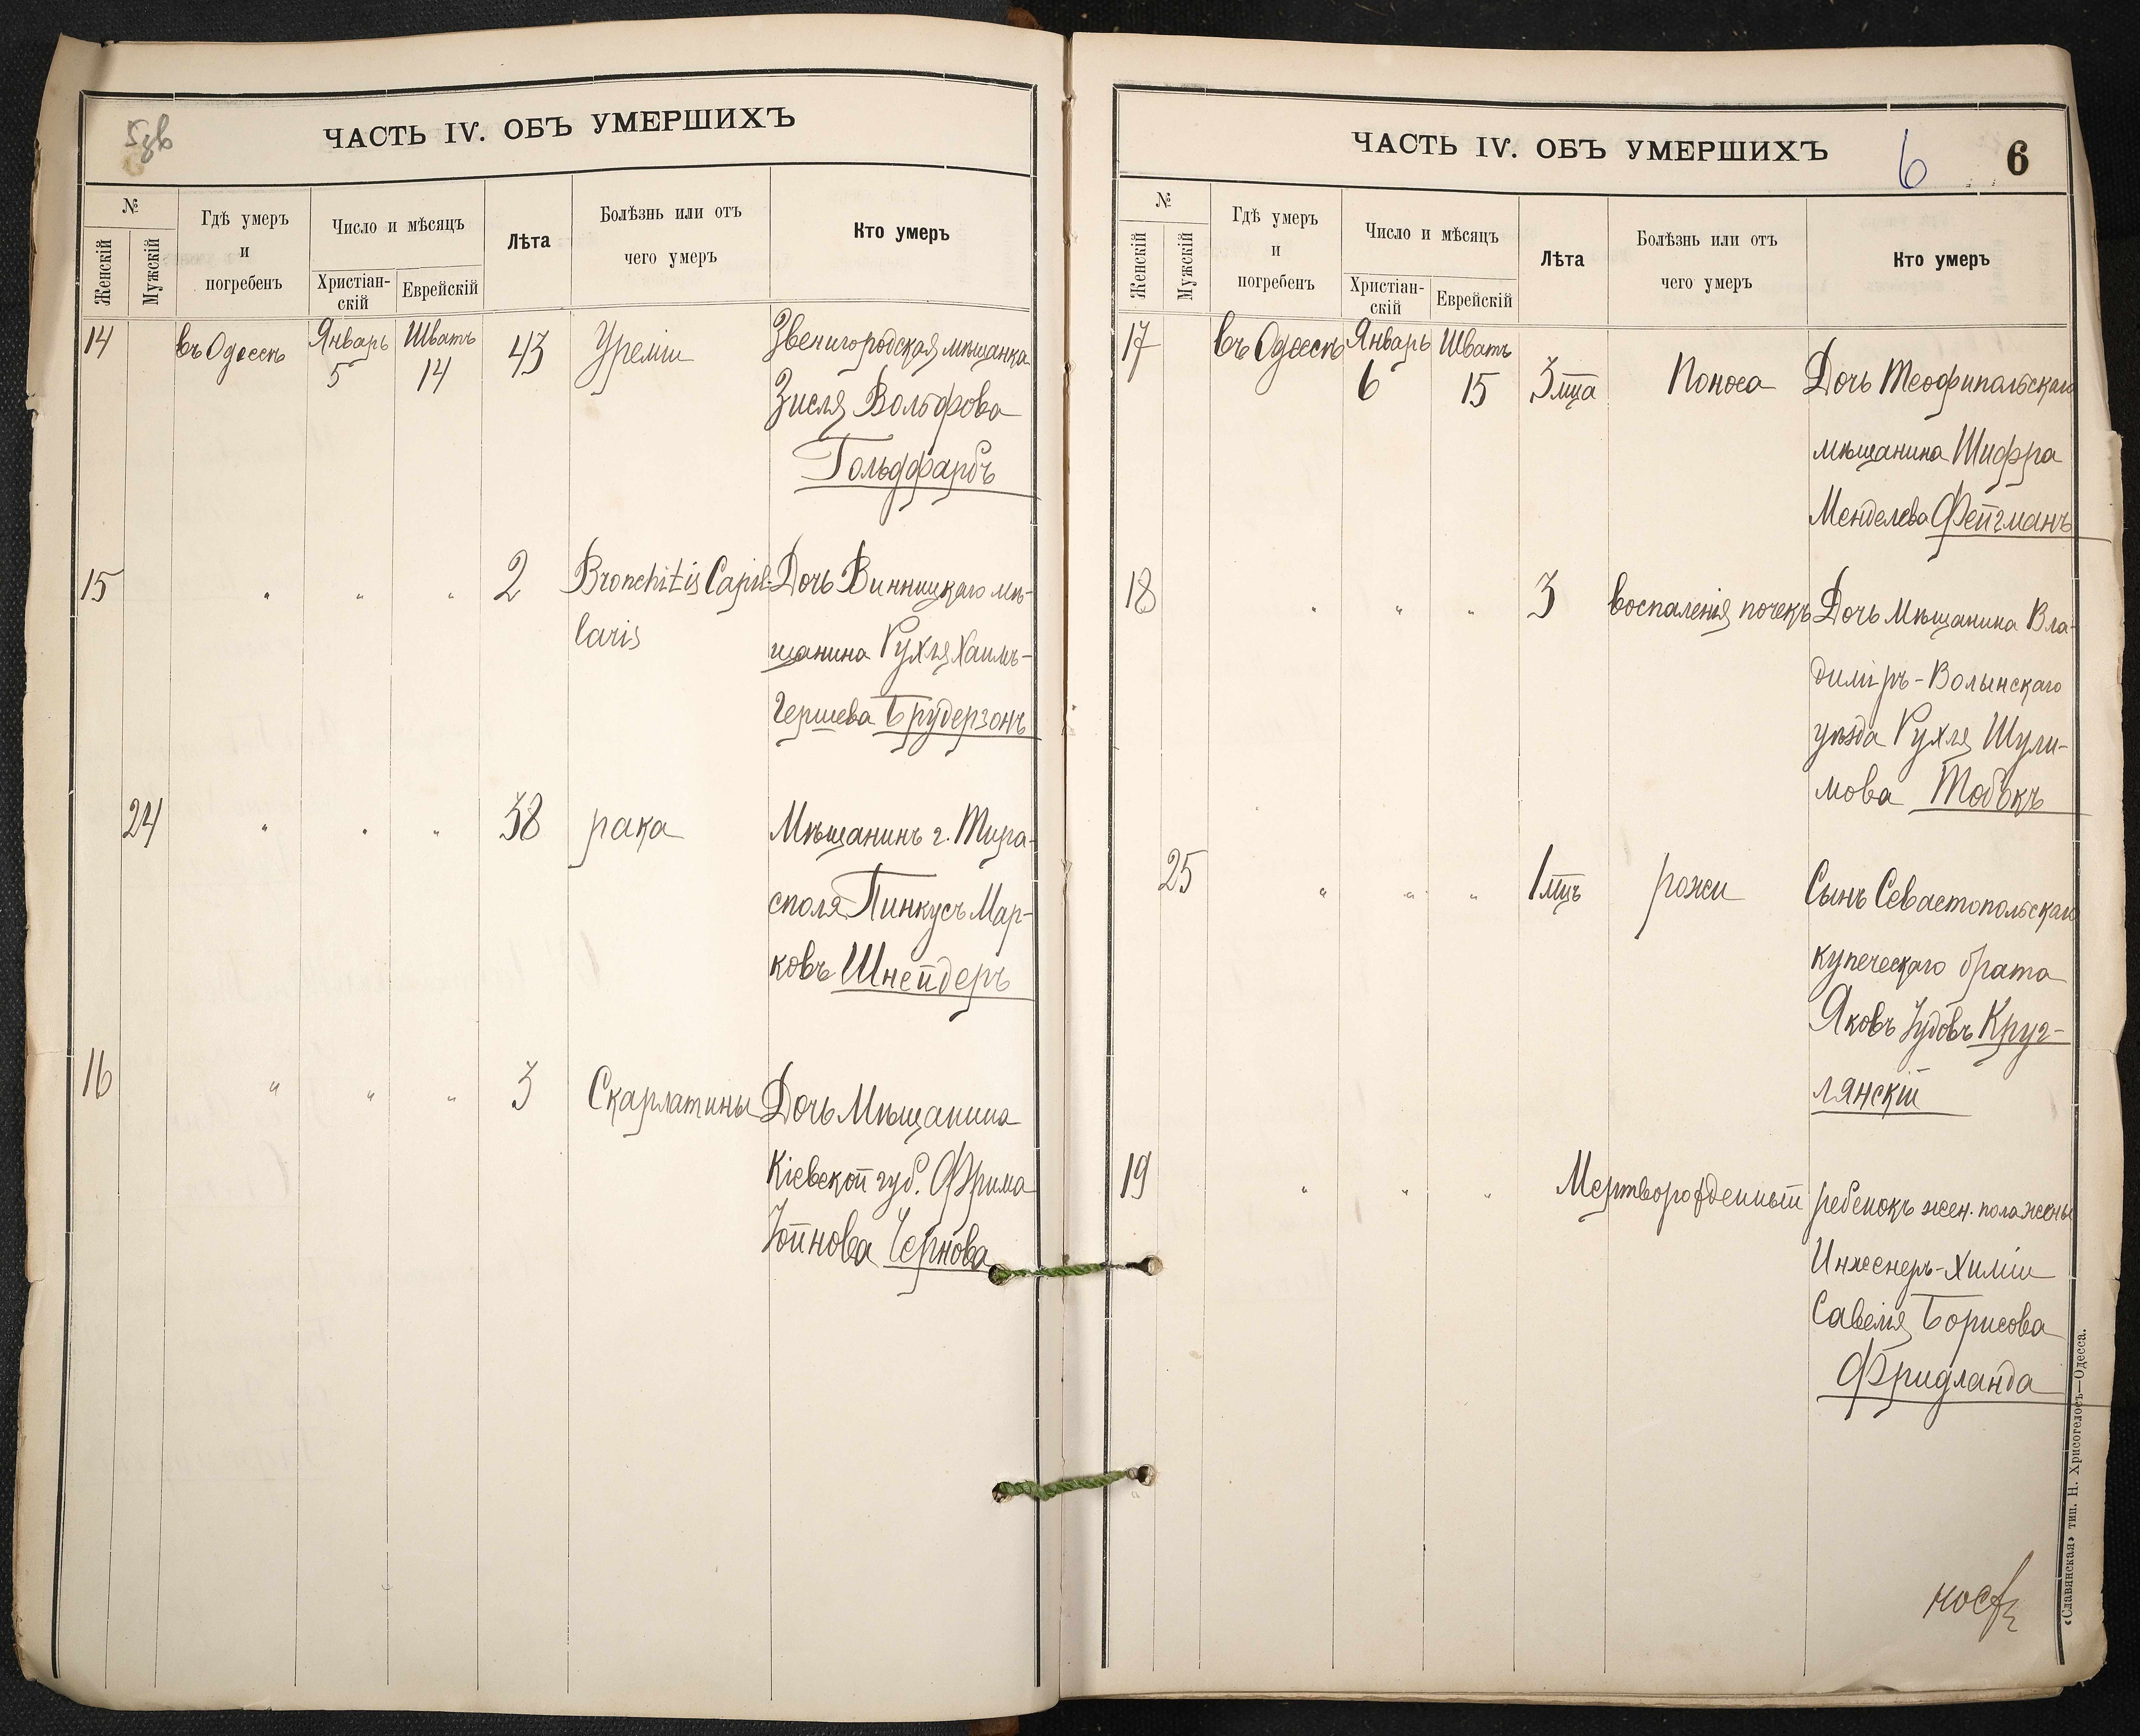 5зв
ЧАСТЬ IV. ОБЪ УМЕРШИХЪ
№
Женскій
Мужскій
Гдѣ умеръ
и
погребенъ
Число и мѣсяцъ
Христіан-
скій
Еврейскій
Лѣта
Болѣзнь или отъ
чего умеръ
Кто умеръ
14 въ Одессѣ Январь 5 Шватъ 14 43 Уреміи Звенигородская мѣщанка
Зисля Вольфова
Гольдфарбъ
15 " " " 2 Bronchitis Capil- Дочь Винницкаго мѣ-
laris щанина Рухля Хаимъ-
Гершева Брудерзонъ
24 " " " 58 рака Мѣщанинъ г. Тира-
споля Пинкусъ Мар-
ковъ Шнейдеръ
16 " " " 3 Скарлатины Дочь Мѣщанина
Кіевской губ. Фрима
Іойнова Чернова
ЧАСТЬ IV. ОБЪ УМЕРШИХЪ
6
6
№
Женскій
Мужскій
Гдѣ умеръ
и
погребенъ
Число и мѣсяцъ
Христіан-
скій
Еврейскій
Лѣта
Болѣзнь или отъ
чего умеръ
Кто умеръ
17 въ Одессѣ Январь 6 Шватъ 15 3 мца Поноса Дочь Теофипольскаго
мѣщанина Шифра
Менделева Фейгманъ
18 " " " 3 воспаленія почекъ Дочь Мѣщанина Вла-
димiръ-Волынскаго
уѣзда Рухля Шули-
мова
25 " " " 1 мцъ рожи Сынъ Севастопольскаго
купеческаго брата
Яковъ Іудовъ Круг-
лянскій
19 " " " Мертворожденный ребенокъ жен. пола жены
Инженеръ-Химіи
Савелія Борисова
Фридланда
«Славянская» тип. Н. Хрисогелосъ—Одесса.